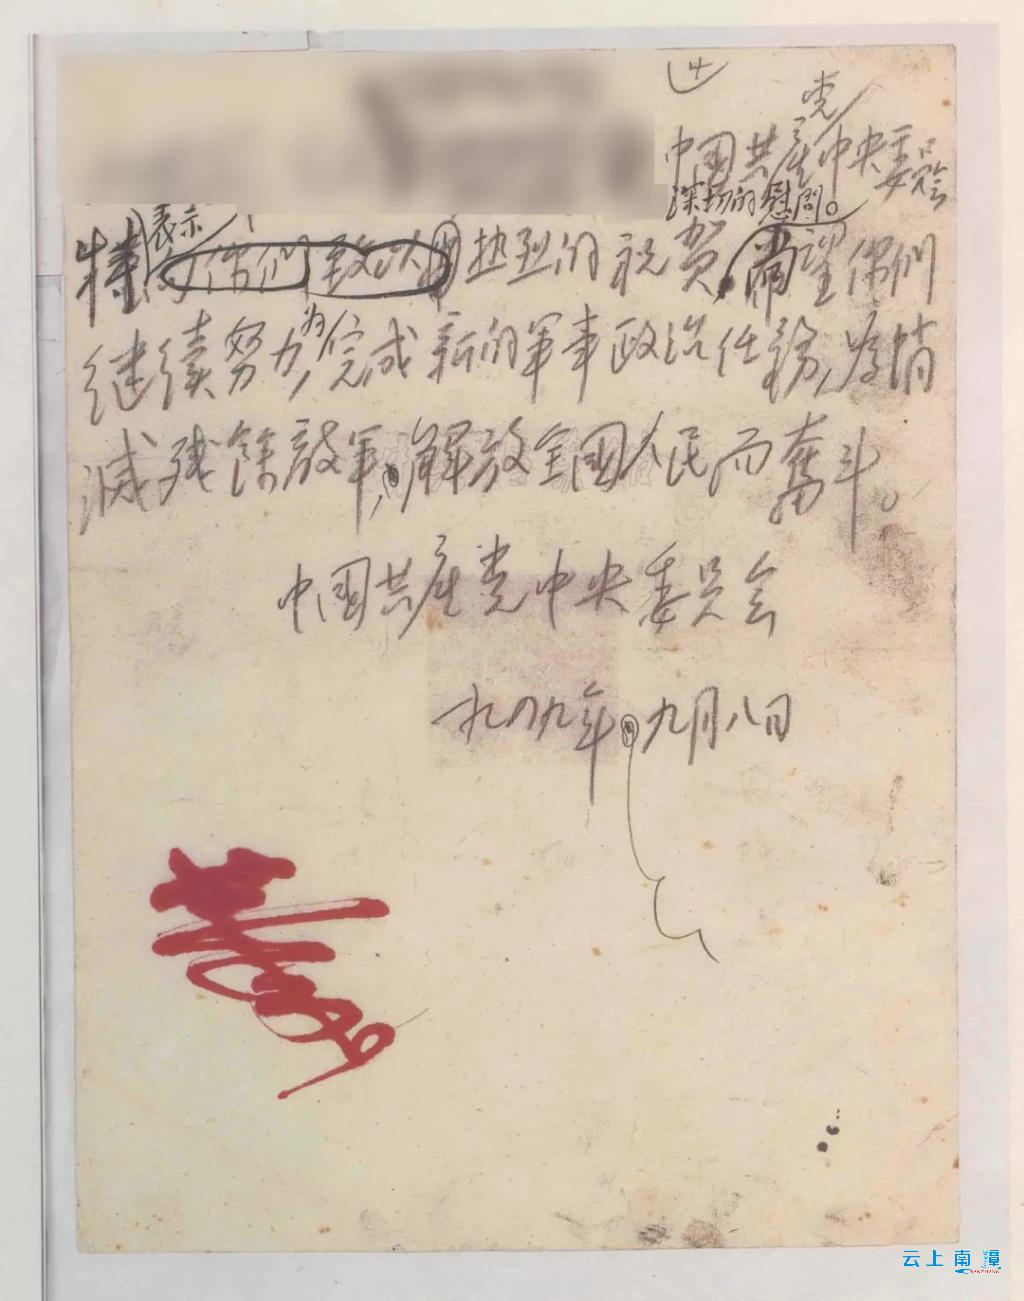 4
党
中国共产中央委员会
深切的慰问。
表示
特向你们致以热烈的祝贺,尚望你们
继续努力,为完成新的军事政治任务,为消
灭残余敌军,解放全国人民而奋斗。
中国共产党中央委员会
一九四九年九月八日
云上南漳
NANZHANG